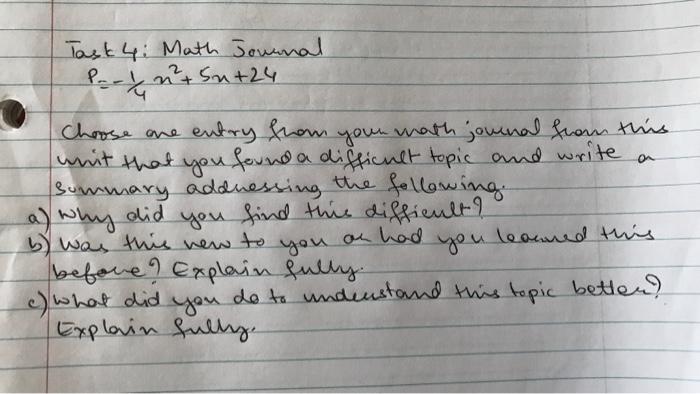 Task 4: Math Journal
P = -1/4 n² + 5n + 24
Choose one entry from your math journal from this
unit that you found a difficult topic and write a
summary addressing the following.
a) Why did you find this difficult?
b) Was this new to you or had you learned this
before? Explain fully.
c) What did you do to understand this topic better?
Explain fully.